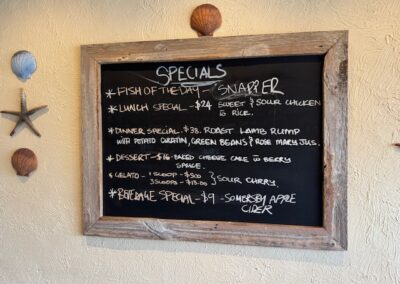 SPECIALS
* FISH OF THE DAY - SNAPPER
* LUNCH SPECIAL - $24 SWEET & SOUR CHICKEN
W RICE.
* DINNER SPECIAL. $38. ROAST LAMB RUMP
WITH POTATO GRATIN, GREEN BEANS & ROSEMARY JUS.
* DESSERT - $16. BAKED CHEESE CAKE W BERRY
SAUCE.
* GELATO - 1 SCOOP - $5.00 } SOUR CHERRY.
3 SCOOPS - $13.00
* BEVERAGE SPECIAL - $9 - SOMERSBY APPLE
CIDER